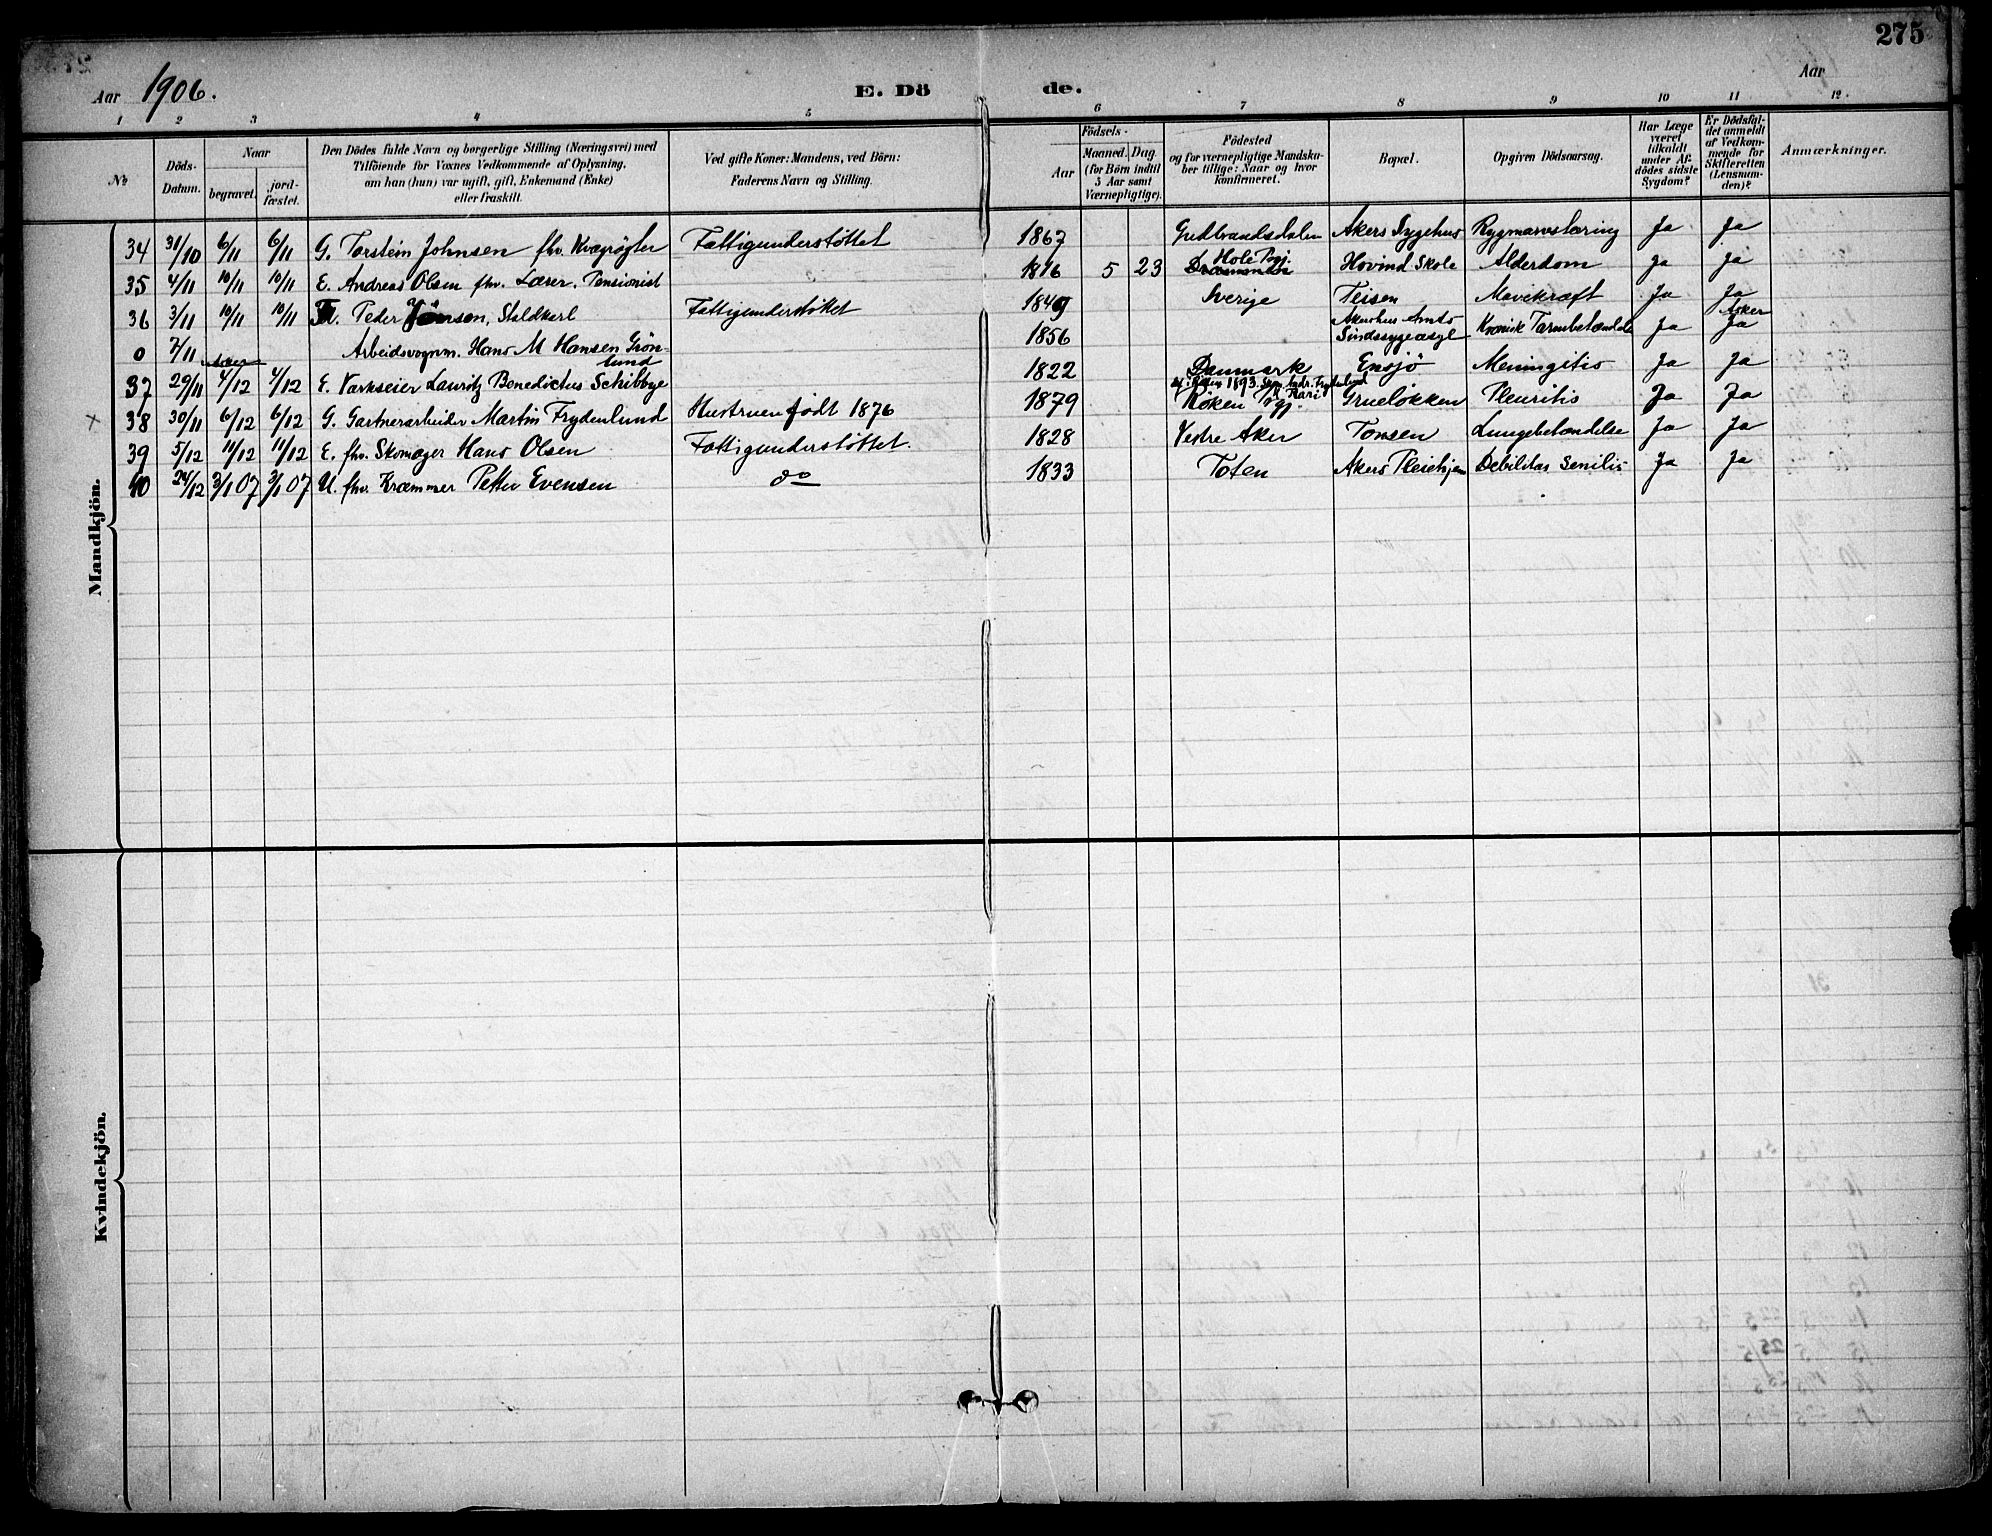 275
Aar 1906. E. Dö de. Aar
1 2 3 4 5 6 7 8 9 10 11 12.
№ | Döds-Datum. | Naar begravet. | jord-fæstet. | Den Dödes fulde Navn og borgerlige Stilling (Næringsvei) med Tilföiende for Voxnes Vedkommende af Oplysning, om han (hun) var ugift, gift, Enkemand (Enke) eller fraskilt. | Ved gifte Koner: Mandens, ved Börn: Faderens Navn og Stilling. | Födsels- Aar | Maaned. Dag. (for Börn indtil 5 Aar samt Værnepligtige). | Födested og for værnepligtige Mandskaber tillige: Naar og hvor konfirmeret. | Bopæl. | Opgiven Dödsaarsag. | Har Læge været tilkaldt under Afdödes sidste Sygdom? | Er Dödsfaldet anmeldt af Vedkommende for Skifteretten (Lensmanden)? | Anmærkninger.
Mandkjön.
34 31/10 6/11 6/11 G. Torstein Johnsen fhv. Kvægrögter Fattigunderstöttet 1867 Gudbrandsdalen Akers Sygehus Rygmarvstæring Ja Ja
35 4/11 10/11 10/11 E. Andreas Olsen fhv. Lærer, Pensionist 1816 5 23 Hole Pgj. Drammen Hovind Skole Alderdom Ja Ja
36 3/11 10/11 10/11 Peder Jönsen, Staldkarl Fattigunderstöttet 1849 Sverige Teisen Mavekræft Ja Ja
0 7/11 Arbeidsvognm. Hans M Hansen Grön-lund 1856 Akershus Amts Sindssygeasyl Kronisk Tarmbetændelse Ja Asker Ja
37 29/11 4/12 4/12 E. Værkseier Lauritz Benedictus Schibbye 1822 Danmark Ensjö Meningitis Ja Ja
x 38 30/11 6/12 6/12 G. Gartnerarbeider Martin Frydenlund Hustruen födt 1876 1879 1893. Frydenlund Kari Röken Pgj. Grueløkken Pleuritis Ja Ja
39 5/12 11/12 11/12 E. fhv. Skomager Hans Olsen Fattigunderstöttet. 1828 Vestre Aker Tonsen Lungebetændelse Ja Ja
40 24/12 3/1 07 3/1 07 U. fhv. Kræmmer Petter Evensen do 1833 Toten Akers Pleiehjem Debilitas Senilis Ja Ja
Kvindekjön.